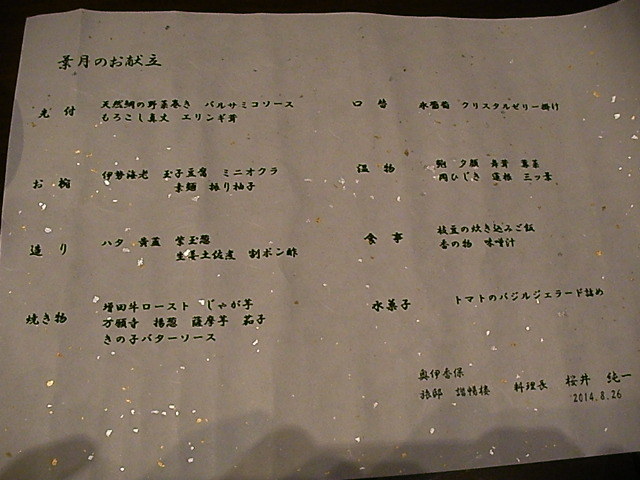 葉月のお献立
先付
天然鯛の野菜巻き バルサミコソース
もろこし真丈 エリンギ茸
お椀
伊勢海老 玉子豆腐 ミニオクラ
素麺 振り柚子
造り
ハタ 黄韮 紫玉葱
生姜土佐煮 割ポン酢
焼き物
増田牛ロースト じゃが芋
万願寺 揚葱 薩摩芋 茄子
きの子バターソース
口替
水葡萄 クリスタルゼリー掛け
温物
鮑 夕顔 舞茸
岡ひじき 蓮根 三ッ葉
食事
枝豆の炊き込みご飯
香の物 味噌汁
水菓子
トマトのバジルジェラード詰め
奥伊香保
旅邸 諧暢楼 料理長 桜井 純一
2014.8.26